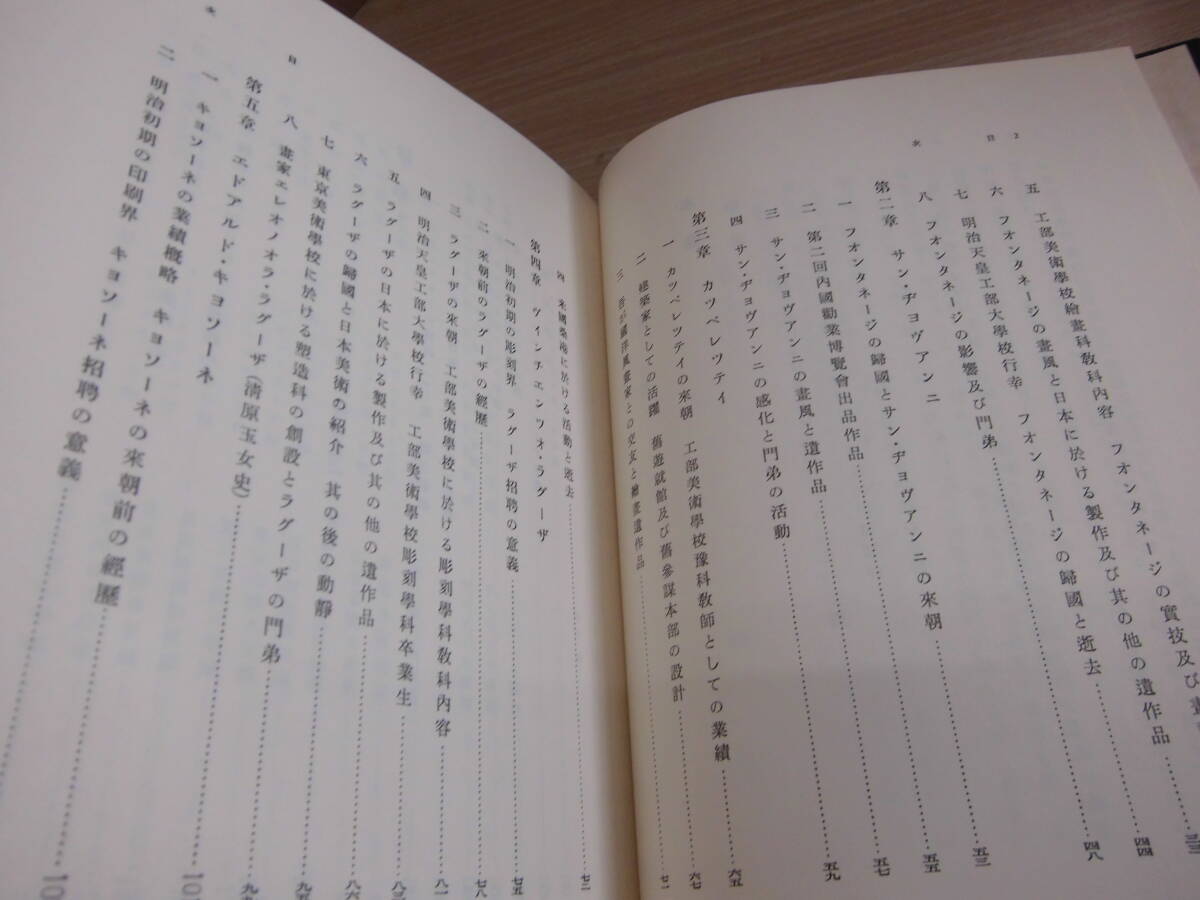 2
目
次
五 工部美術學校繪畫科敎科內容 フオンタネージの實技及び畫
六 フオンタネージの畫風と日本に於ける製作及び其の他の遺作品……四四
七 明治天皇工部大學校行幸 フオンタネージの歸國と逝去……四八
八 フオンタネージの影響及び門弟……五三
第二章 サン・ヂョヴアンニ
一 フオンタネージの歸國とサン・ヂョヴアンニの來朝……五五
二 第二回內國勸業博覽會出品作品……五七
三 サン・ヂョヴアンニの畫風と遺作品……五九
四 サン・ヂョヴアンニの感化と門弟の活動……六五
第三章 カツペレツテイ
一 カツペレツテイの來朝 工部美術學校豫科敎師としての業績……六七
二 建築家としての活躍 舊遊就館及び舊參謀本部の設計
三 吾が國洋風畫家との交友と繪畫遺作品……七一
四 米國桑港に於ける活動と逝去……七二
第四章 ヴインチエンツオ・ラグーザ
一 明治初期の彫刻界 ラグーザ招聘の意義……七五
二 來朝前のラグーザの經歷……七八
三 ラグーザの來朝 工部美術學校に於ける彫刻學科敎科內容……八一
四 明治天皇工部大學校行幸 工部美術學校彫刻學科卒業生
五 ラグーザの日本に於ける製作及び其の他の遺作品……八六
六 ラグーザの歸國と日本美術の紹介 其の後の動靜
七 東京美術學校に於ける塑造科の創設とラグーザの門弟
八 畫家エレオノオラ・ラグーザ(淸原玉女史)
第五章 エドアルド・キヨソーネ
一 キヨソーネの業績概略 キヨソーネの來朝前の經歷
二 明治初期の印刷界 キヨソーネ招聘の意義
目
次